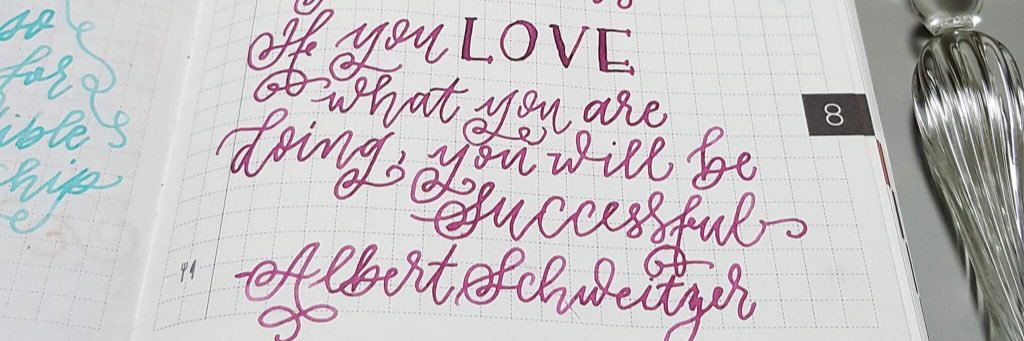 so
for
If you LOVE
what you are
doing, you will be
successful
Albert Schweitzer
8